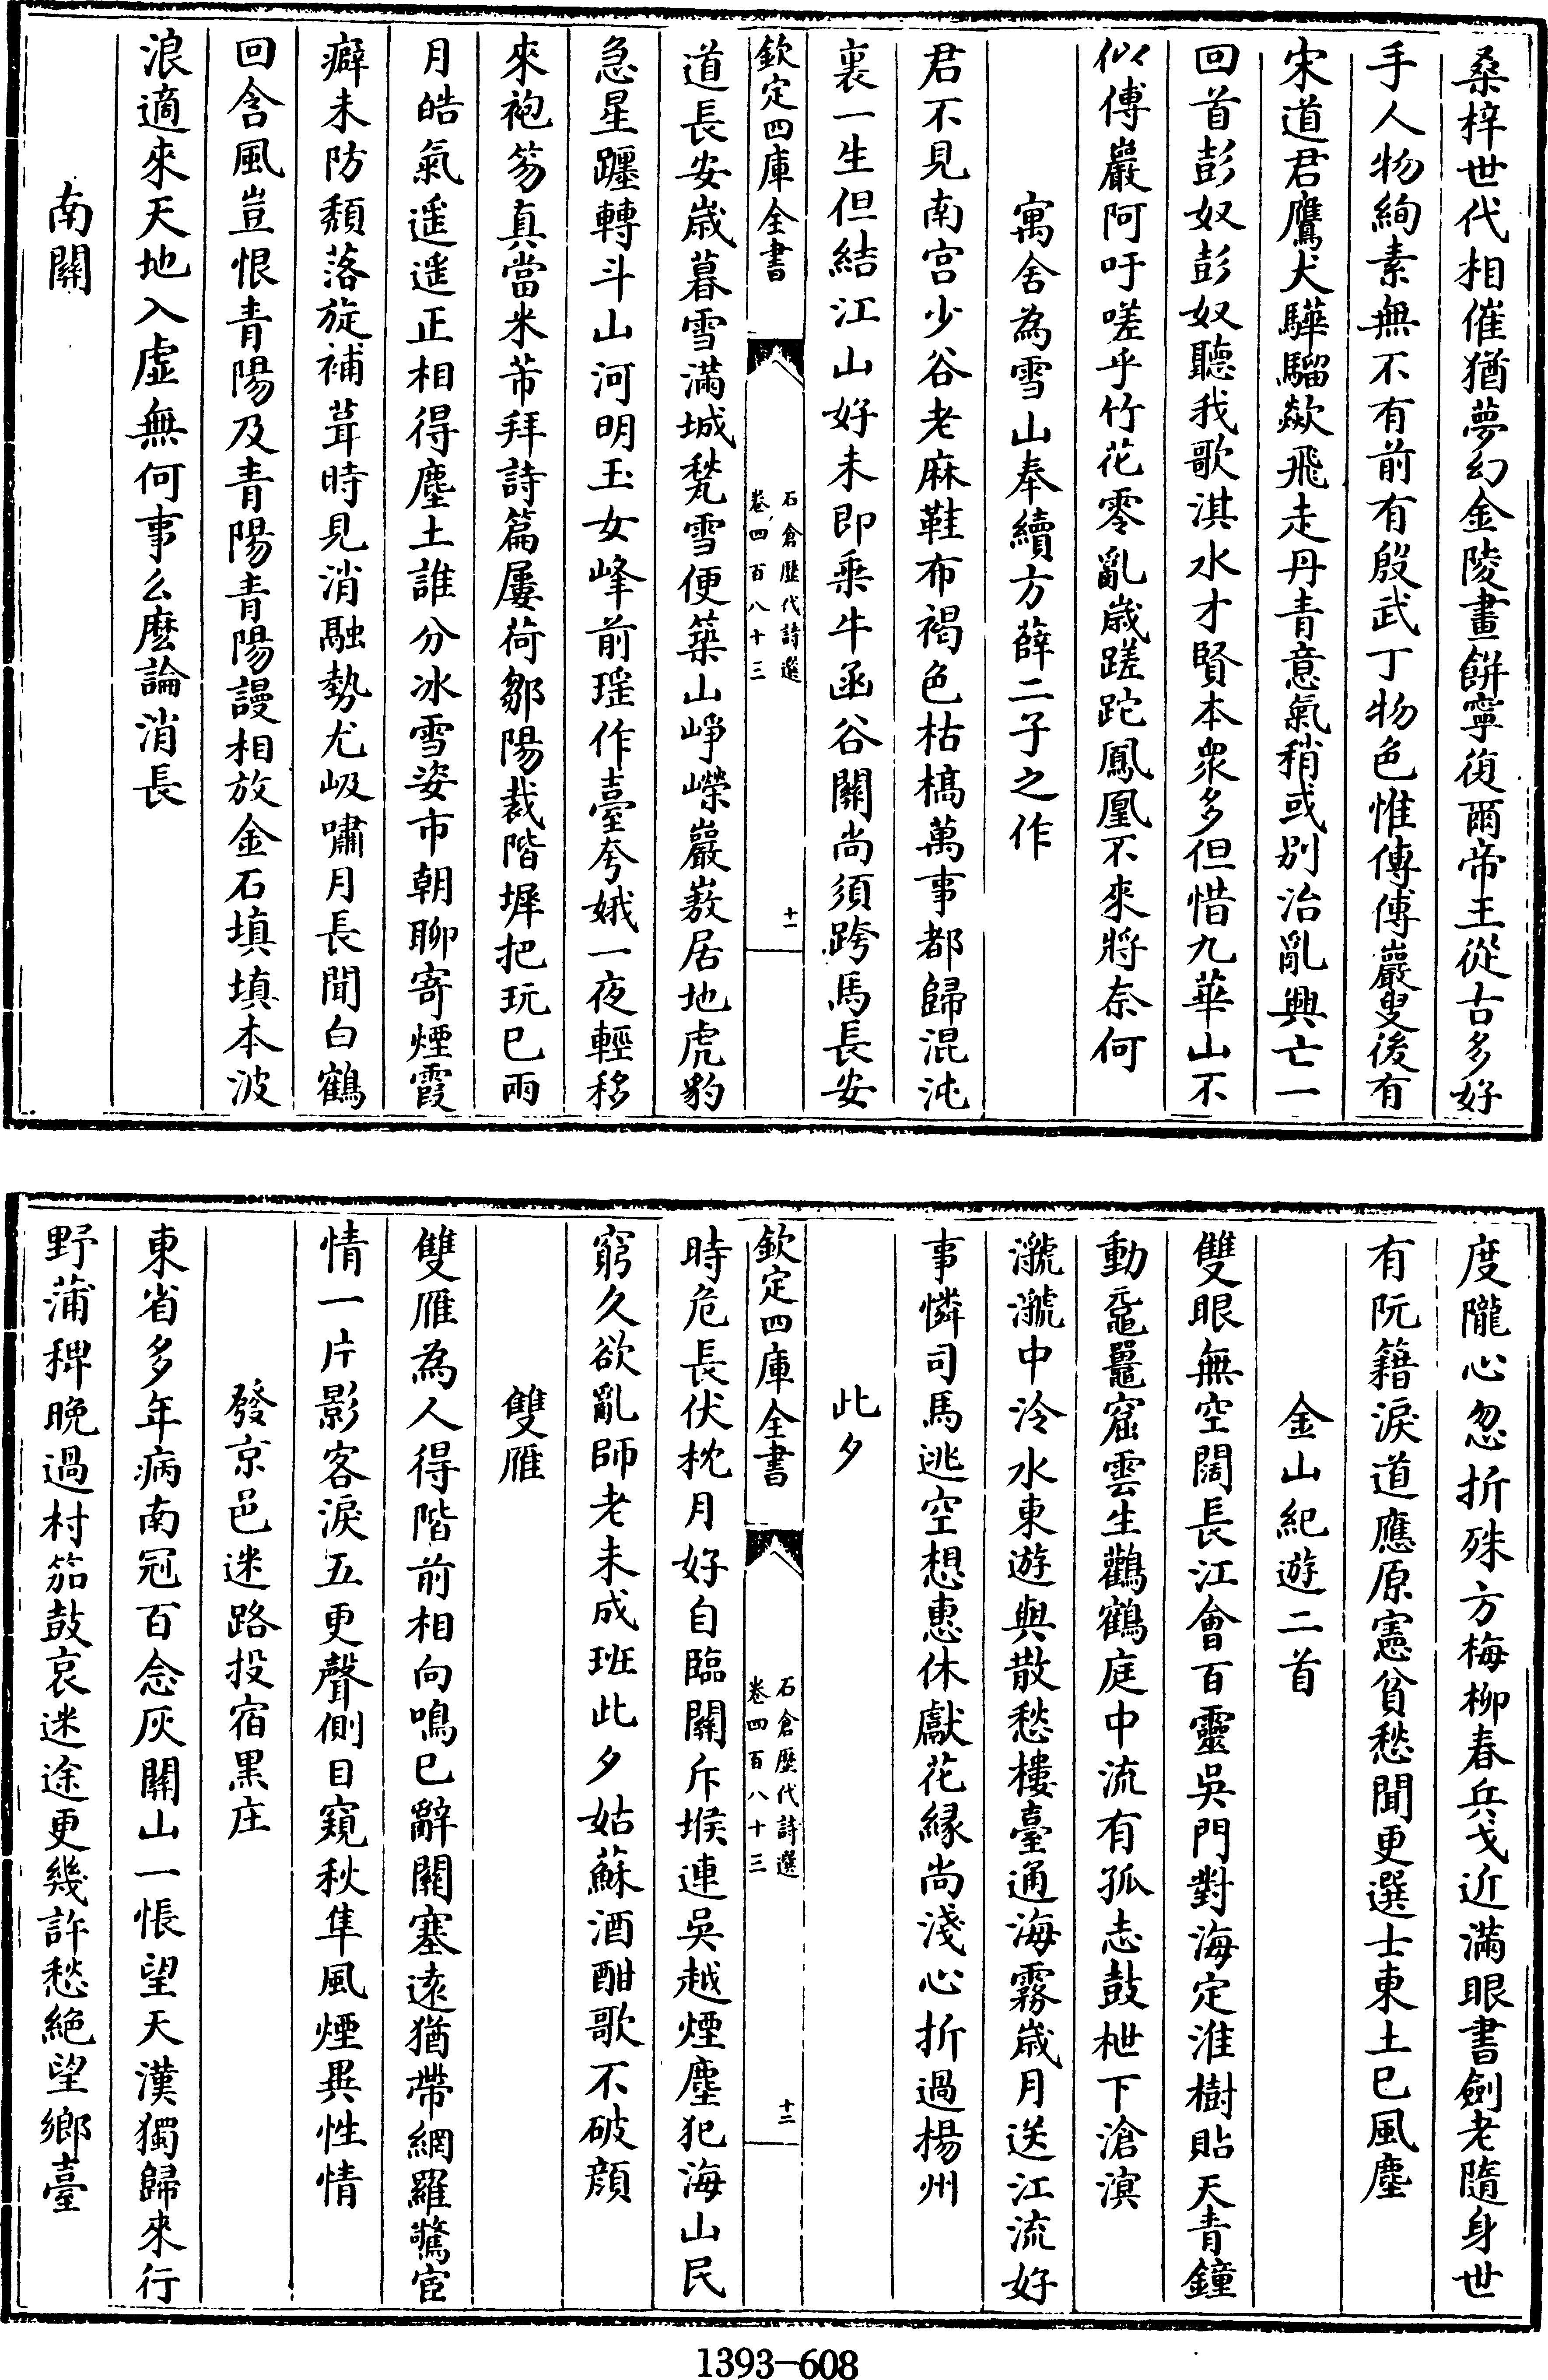 桑梓世代相催猶夢幻金陵畫餅寧復爾帝王從古多好
手人物絢素無不有前有殷武丁物色惟傅傅巖叟後有
宋道君鷹犬驊騮歘飛走丹青意氣稍或別治亂興亡一
回首彭奴彭奴聽我歌淇水才賢本衆多但惜九華山不
似傅巖阿吁嗟乎竹花零亂歲蹉跎鳳凰不來將奈何
寓舍為雪山奉續方薛二子之作
君不見南宫少谷老麻鞋布褐色枯槁萬事都歸混沌
裏一生但結江山好未即乗牛函谷關尚須跨馬長安
欽定四庫全書
石倉歷代詩選
卷四百八十三
十一
道長安歲暮雪滿城甃雪便築山崢嶸巖嶅居地虎豹
急星躔轉斗山河明玉女峰前瑶作臺夸娥一夜輕移
來袍笏真當米芾拜詩篇屢荷鄒陽裁階墀把玩已兩
月皓氣遥遥正相得塵土誰分冰雪姿市朝聊寄煙霞
癖未防頽落旋補葺時見消融勢尤岋嘯月長聞白鶴
回含風豈恨青陽及青陽青陽謾相放金石填填本波
浪適來天地入虛無何事么麽論消長
南關
度隴心忽折殊方梅柳春兵戈近滿眼書劍老隨身世
有阮籍淚道應原憲貧愁聞更選士東土已風塵
金山紀遊二首
雙眼無空闊長江會百靈吳門對海定淮樹貼天青鐘
動黿鼉窟雲生鸛鶴庭中流有孤志鼓枻下滄溟
㶁㶁中泠水東遊與散愁樓臺通海霧歲月送江流好
事憐司馬逃空想惠休獻花縁尚淺心折過楊州
此夕
欽定四庫全書
石倉歷代詩選
卷四百八十三
十二
時危長伏枕月好自臨關斥堠連吳越煙塵犯海山民
窮久欲亂師老未成班此夕姑蘇酒酣歌不破顔
雙雁
雙雁為人得階前相向鳴已辭關塞遠猶帶網羅驚宦
情一片影客淚五更聲側目窺秋隼風煙異性情
發京邑迷路投宿黒庄
東省多年病南冠百念灰關山一悵望天漢獨歸來行
野蒲稗晚過村笳鼓哀迷途更幾許愁絶望鄉臺
1393-608